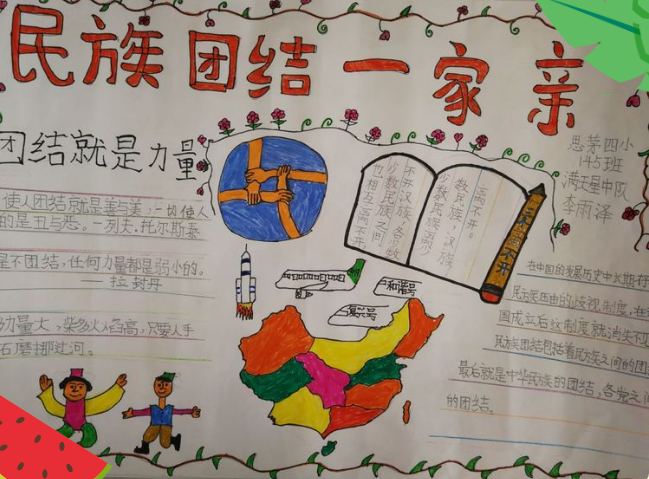 民族团结一家亲
团结就是力量
使人团结的是善与美，一切使人
的是丑与恶。—列夫.托尔斯泰
是不团结，任何力量都是弱小的。
——拉封丹
力量大，柴多火焰高，只要人手
石磨挪过河。
离不开。
数民族，汉族
少数民族离
不开汉族，各
少数民族之间
也相互离不开。
三个离不开
和谐号
复兴号
思茅四小
145班
满天星中队
李雨泽
在中国的发展历史中长期存
民族压迫的歧视制度，在
国成立后这制度就消失不
民族团结包括着民族之间的团
最后就是中华民族的团结，各党之间
的团结。